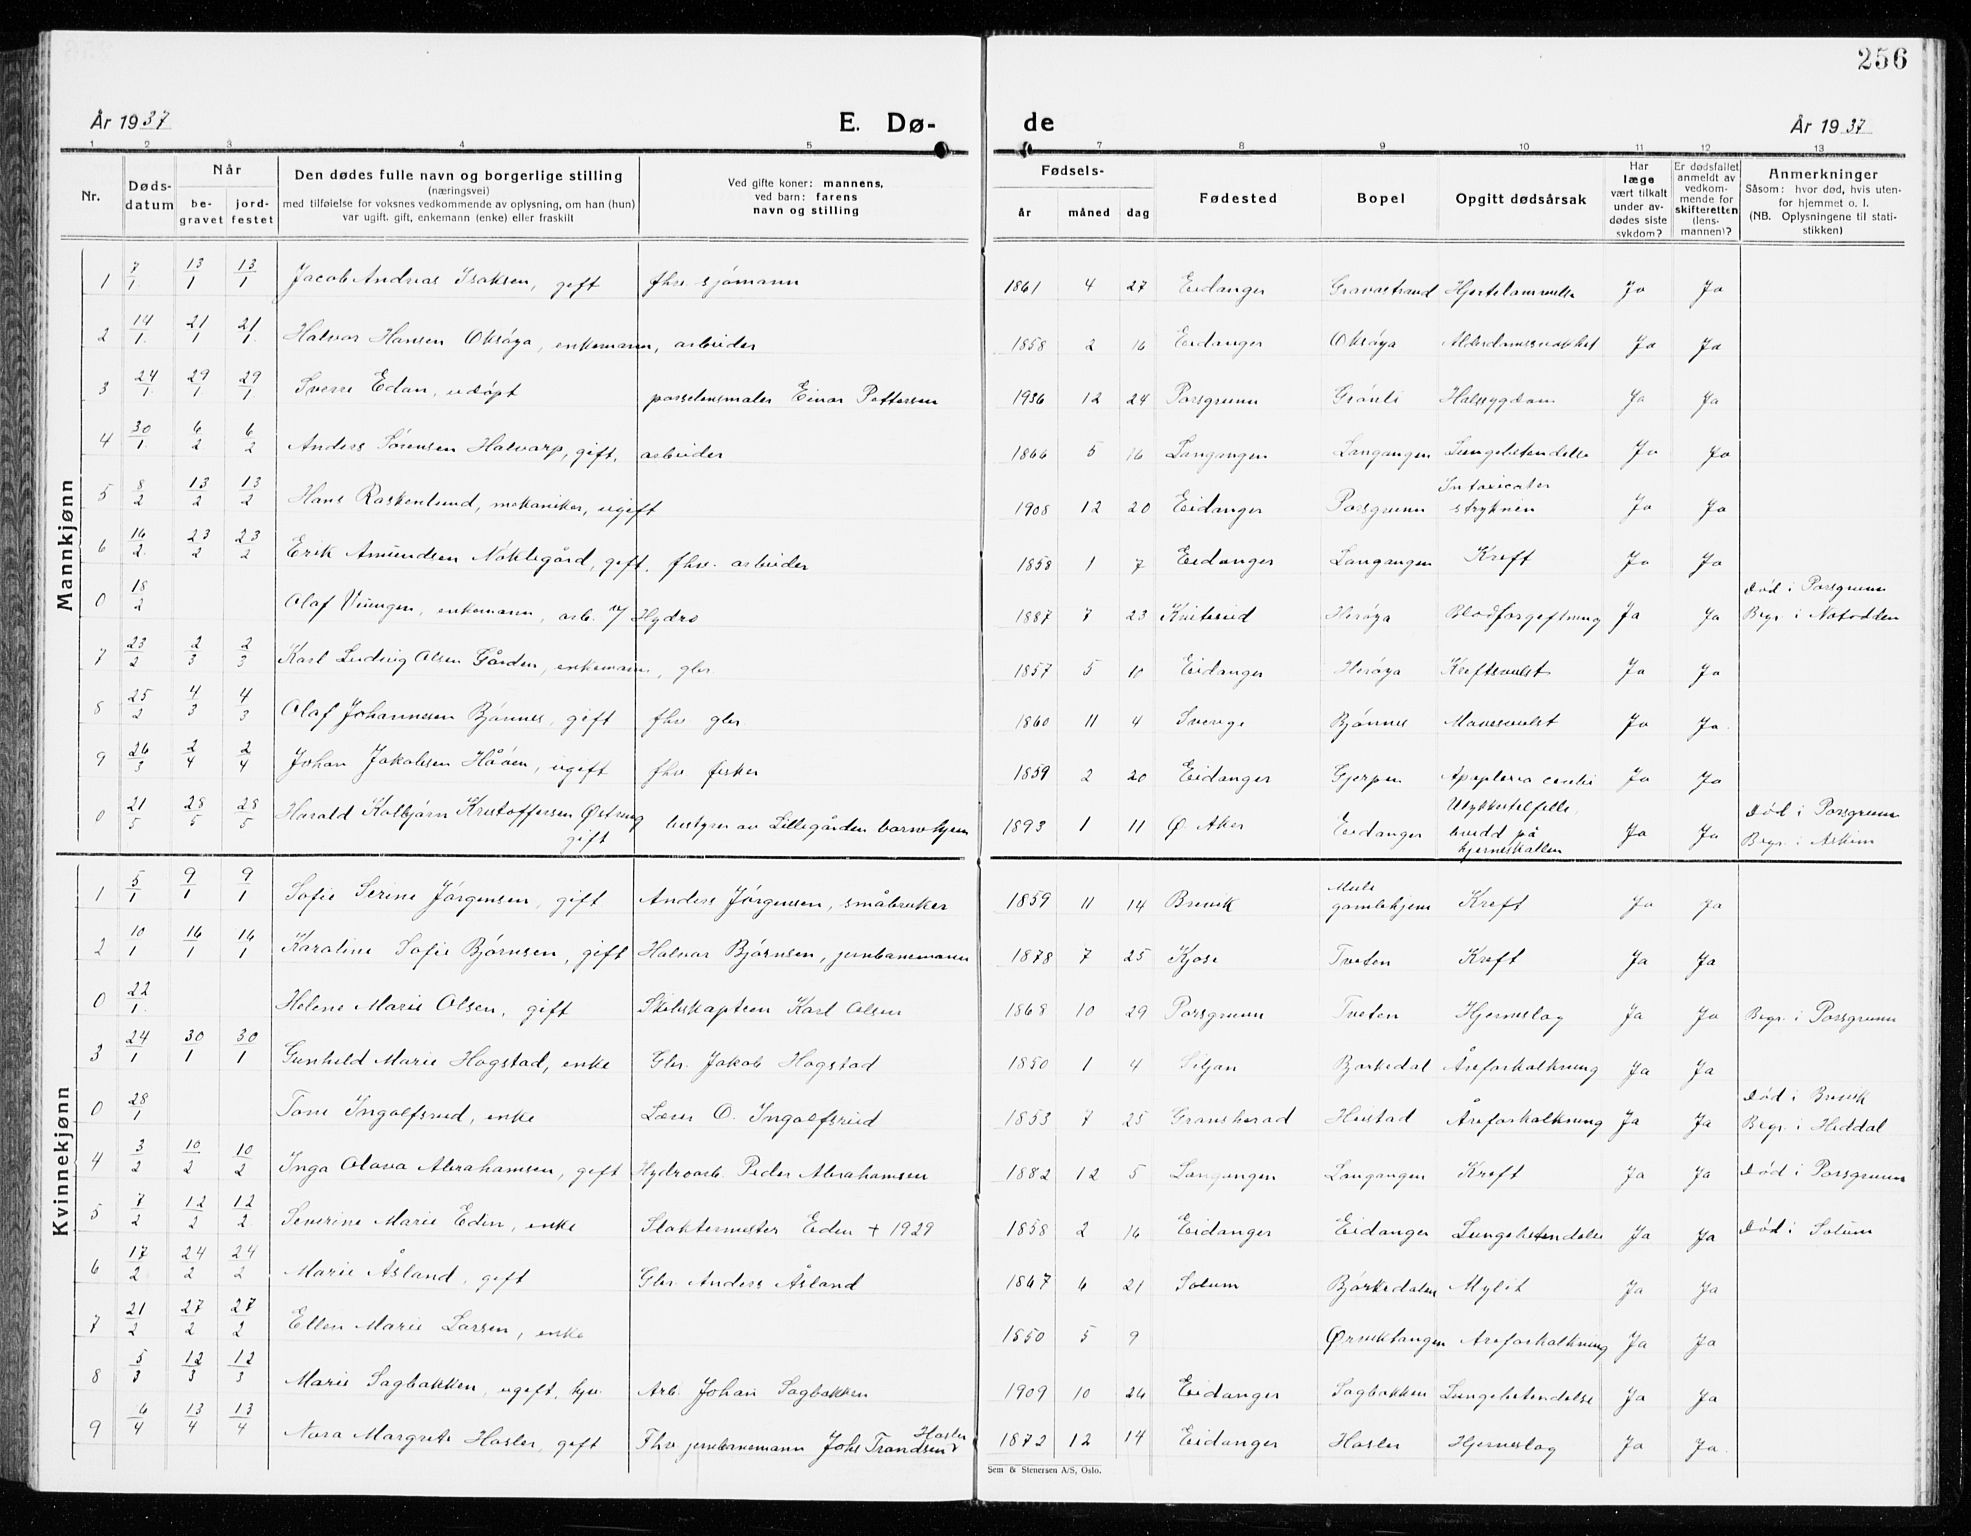 256
År 1937 E. Dø- de År 1937
1 2 3 4 5 7 8 9 10 11 12 13
Nr. Døds-datum Når be-gravet jord-festet Den dødes fulle navn og borgerlige stilling (næringsvei) med tilføielse for voksnes vedkommende av oplysning, om han (hun) var ugift, gift, enkemann (enke) eller fraskilt Ved gifte koner: mannens, ved barn: farens navn og stilling Fødsels- år måned dag Fødested Bopel Opgitt dødsårsak Har læge vært tilkalt under av-dødes siste sykdom? Er dødsfallet anmeldt av vedkom-mende for skifteretten (lens-mannen)? Anmerkninger Såsom: hvor død, hvis uten-for hjemmet o. l. (NB. Oplysningene til stati-stikken)
Mannkjønn
1 7/1 13/1 13/1 Jacob Andreas Isaksen, gift fhv. sjømann 1861 4 27 Eidanger Gravastrand Hjertelammelse Ja Ja
2 14/1 21/1 21/1 Halvor Hansen Oksøya, enkemann, arbeider 1858 2 16 Eidanger Oksøya Alderdomssvakhet Ja Ja
3 24/1 29/1 29/1 Sverre Edan, udøpt porselensmaler Einar Pettersen 1936 12 24 Porsgrunn Grønli Halssygdom Ja Ja
4 30/1 6/2 6/2 Anders Sørensen Halvarp, gift, arbeider 1866 5 16 Langangen Langangen Lungebetendelse Ja Ja
5 8/2 13/2 13/2 Hans Raskenlund, mekaniker, ugift 1908 12 20 Eidanger Porsgrunn Intoxicatio stryknin Ja Ja
6 16/2 23/2 23/2 Erik Amundsen Nøklegård, gift, fhv. arbeider 1858 1 7 Eidanger Langangen Kreft Ja Ja
0 18/2 Olaf Vinngen, enkemann, arb. v/ Hydro 1887 7 23 Kviteseid Herøya Blodforgiftning Ja Ja Død i Porsgrunn Begr. i Notodden
7 23/2 2/3 2/3 Karl Ludvig Olsen Gården, enkemann, gbr. 1857 5 10 Eidanger Herøya Kreftsvulst Ja Ja
8 25/2 4/3 4/3 Olaf Johannesen Bjønnes, gift fhv. gbr 1860 11 4 Sverige Bjønnes Mavesvulst Ja Ja.
9 26/3 2/4 2/4 Johan Jakobsen Håøen, ugift fhv fisker 1859 2 20 Eidanger Gjerpen Apoplexia cerebri Ja Ja
0 21/5 28/5 28/5 Harald Kolbjørn Kristoffersen Østreng gift bestyrer av Lillegården barnehjem 1893 1 11 Ø. Aker Eidanger Ulykkestilfelle, brudd på hjerneskallen Ja Ja Død i Porsgrunn Begr. i Askim
Kvinnekjønn
1 5/1 9/1 9/1 Sofie Serine Jørgensen, gift Anders Jørgensen, småbruker 1859 11 14 Brevik Mule gamlehjem Kreft Ja Ja
2 10/1 16/1 16/1 Karoline Sofie Bjørnsen, gift Halvor Bjørnsen, jernbanemann 1878 7 25 Kjose Tveten Kreft Ja Ja
0 22/1 Helene Marie Olsen, gift Skibskaptein Karl Olsen 1868 10 29 Porsgrunn Tveten Hjerneslag Ja Ja Begr. i Porsgrunn
3 24/1 30/1 30/1 Gunhild Marie Hogstad, enke Gbr. Jakob Hogstad 1850 1 4 Siljan Bjørkedal Åreforkalkning Ja Ja
0 28/1 Tone Ingolfsrud, enke Lærer O. Ingolfsrud 1853 7 25 Gransherad Heistad Åreforkalkning Ja Ja Død i Brevik Begr. i Heddal
4 3/2 10/2 10/2 Inga Olava Abrahamsen, gift Hydroarb. Peder Abrahamsen 1882 12 5 Langangen Langangen Kreft Ja Ja Død i Porsgrunn
5 7/2 12/2 12/2 Severine Marie Eden, enke Slaktermester Eden + 1929 1858 2 16 Eidanger Eidanger Lungebetendelse Ja Ja Død i Solum
6 17/2 24/2 24/2 Marie Åsland, gift Gbr. Anders Åsland 1867 6 21 Solum Bjørkedalen Mylit Ja Ja
7 21/2 27/2 27/2 Ellen Marie Larsen, enke 1850 5 9 Ørviktangen Åreforkalkning Ja Ja
8 5/3 12/3 12/3 Marie Sagbakken, ugift, hjv. Arb. Johan Sagbakken 1909 10 26 Eidanger Sagbakken Lungebetendelse Ja Ja
9 6/4 13/4 13/4 Nora Margrete Hasler, gift Fhv jernbanemann Johs Trandsen Hasler 1872 12 14 Eidanger Hasler Hjerneslag Ja Ja.
Sem & Stenersen A/S, Oslo.